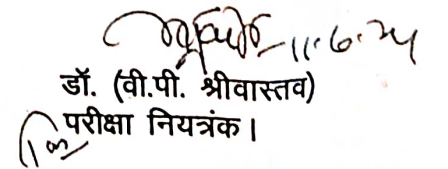 11.6.24
डॉ. (वी.पी. श्रीवास्तव)
परीक्षा नियत्रंक।